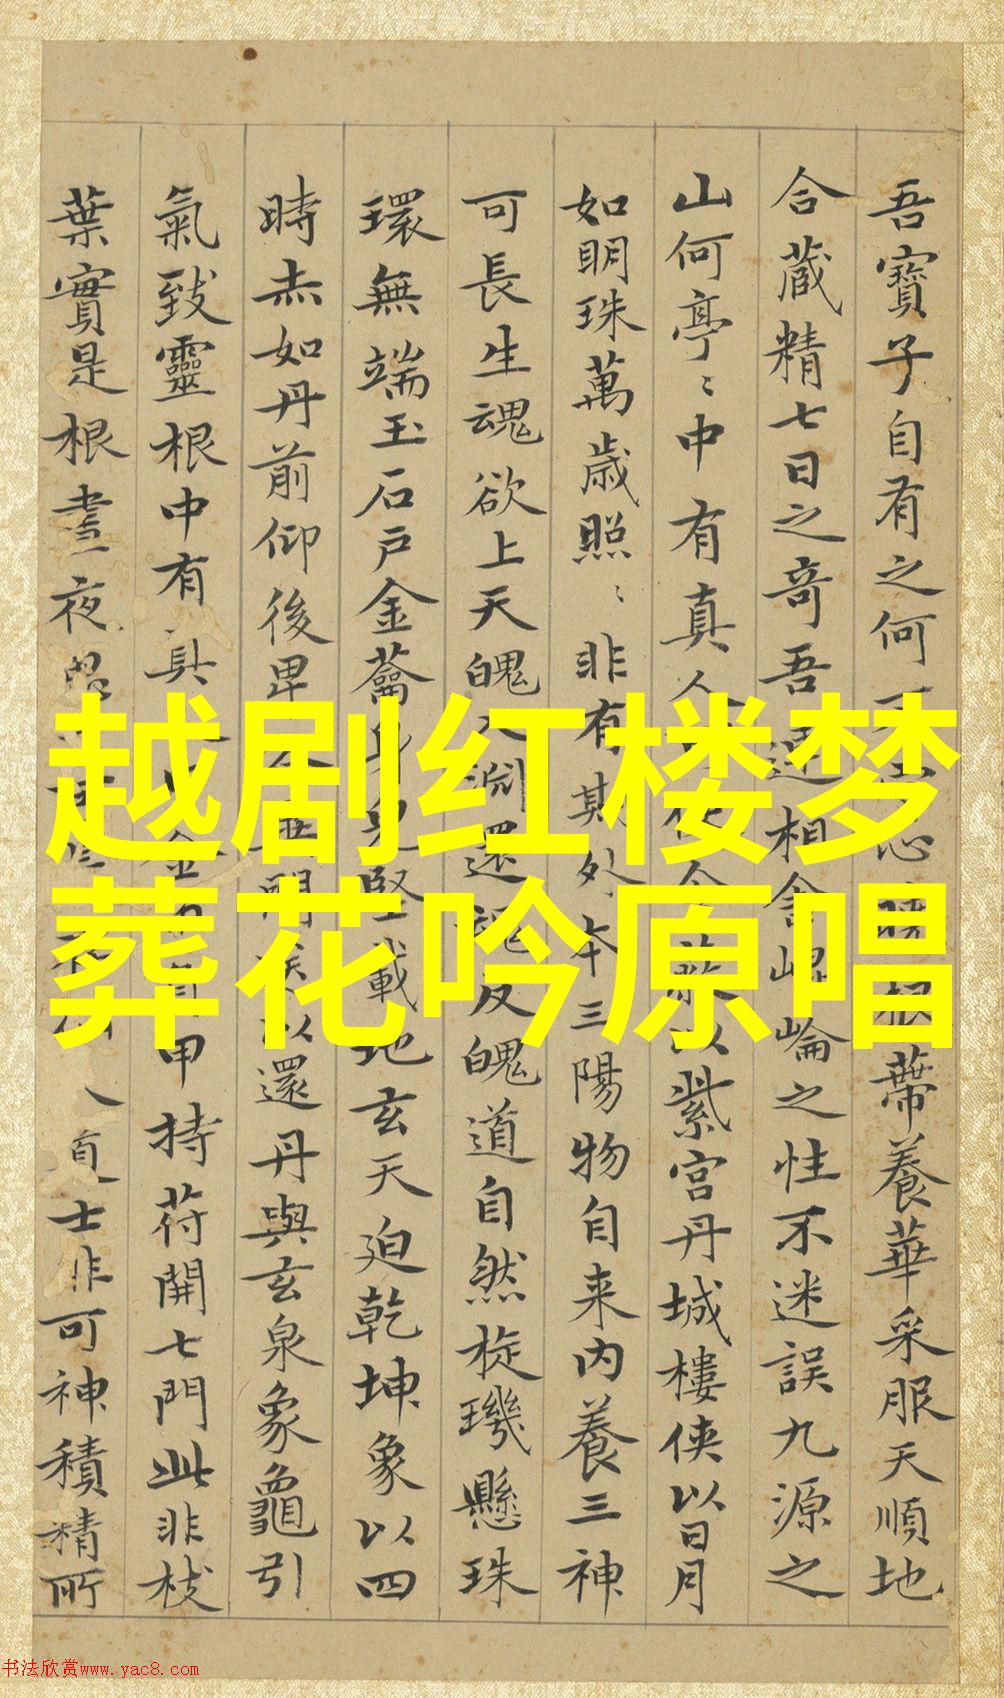 吾寶子自有之何
根蔕養華采服天順地
合蔵精七日之奇吾
相舍崐崘之性不迷誤九源之
山何亭〻中有真人
以紫宮丹城樓俠以日月
如明珠萬歲照〻非有其外本三陽物自来内養三神
可長生魂欲上天魄入淵還魂反魄道自然㫌璣懸珠
環無端玉石戶金籥身皃堅載地玄天迫乾坤象以四
時赤如丹前仰後卑
以還丹與玄泉象龜引
氣致靈根中有真
持苻開七門此非枝
葉實是根晝夜
士非可神積精所
越剧红楼梦
葬花吟原唱
书法欣赏www.yac8.com